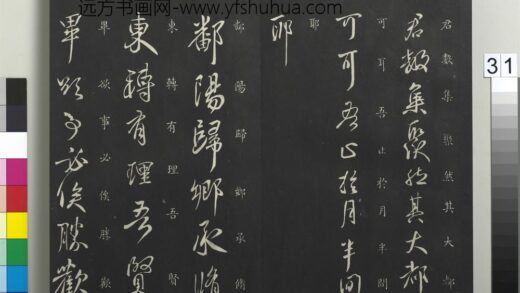 远方书画网-www.yfshuhua.com
31
君數集聚然其大都
君數集聚然其大都
可耳吾止於月半間
可耳吾止於月半間
耶
耶
鄱陽歸鄉承脩
鄱陽歸鄉承脩
東轉有理吾賢
東轉有理吾賢
畢欲事必俟勝歡
畢欲事必俟勝歡